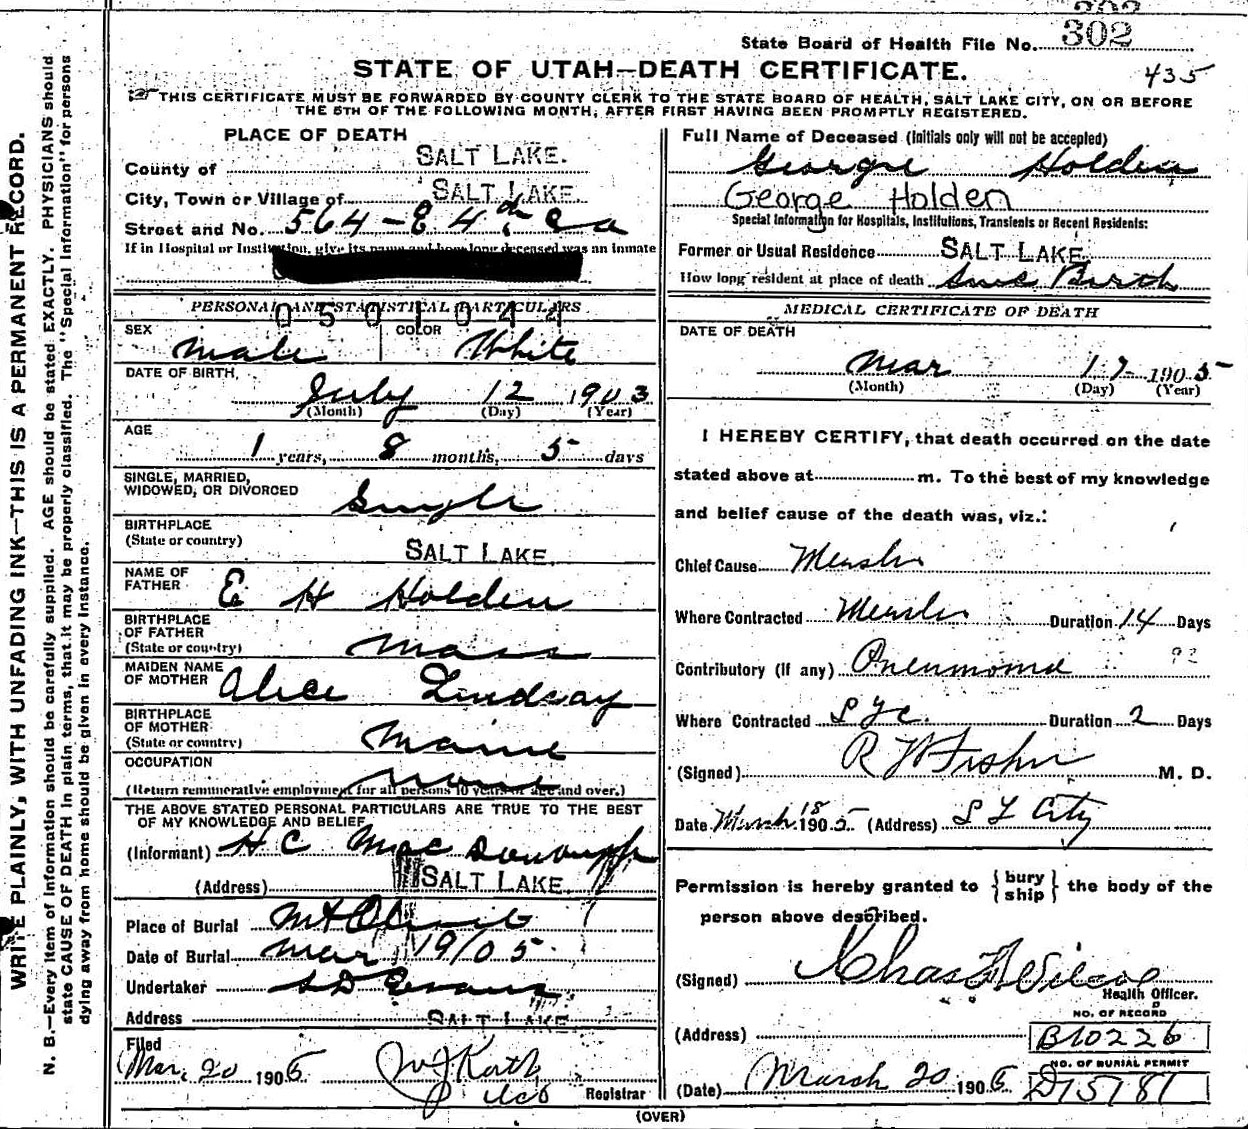 302
State Board of Health File No. 302
STATE OF UTAH—DEATH CERTIFICATE.
435
THIS CERTIFICATE MUST BE FORWARDED BY COUNTY CLERK TO THE STATE BOARD OF HEALTH, SALT LAKE CITY, ON OR BEFORE
THE 5TH OF THE FOLLOWING MONTH, AFTER FIRST HAVING BEEN PROMPTLY REGISTERED.
WRITE PLAINLY, WITH UNFADING INK—THIS IS A PERMANENT RECORD.
N. B.—Every item of information should be carefully supplied. AGE should be stated EXACTLY. PHYSICIANS should
state CAUSE OF DEATH in plain terms, that it may be properly classified. The "Special Information" for persons
dying away from home should be given in every instance.
PLACE OF DEATH
County of SALT LAKE.
City, Town or Village of SALT LAKE.
Street and No. 564-E 4th
If in Hospital or Institution, give its name and how long deceased was an inmate
PERSONAL AND STATISTICAL PARTICULARS
0501044
SEX Male COLOR White
DATE OF BIRTH, July 12 1903
(Month) (Day) (Year)
AGE 1 years, 8 months, 5 days
SINGLE, MARRIED,
WIDOWED, OR DIVORCED Single
BIRTHPLACE
(State or country) SALT LAKE.
NAME OF
FATHER E H Holden
BIRTHPLACE
OF FATHER
(State or country) Mass
MAIDEN NAME
OF MOTHER Alice Lindsay
BIRTHPLACE
OF MOTHER
(State or country) Maine
OCCUPATION None
(Return remunerative employment for all persons 10 years of age and over.)
THE ABOVE STATED PERSONAL PARTICULARS ARE TRUE TO THE BEST
OF MY KNOWLEDGE AND BELIEF
(Informant) H C Mac
(Address) SALT LAKE.
Place of Burial Mt Olivet
Date of Burial Mar 19/05
Undertaker S D Evans
Address SALT LAKE
Filed
Mar. 20 1905
Registrar
Full Name of Deceased (Initials only will not be accepted)
George Holden
George Holden
Special Information for Hospitals, Institutions, Transients or Recent Residents:
Former or Usual Residence SALT LAKE.
How long resident at place of death Since Birth
MEDICAL CERTIFICATE OF DEATH
DATE OF DEATH
Mar 17 1905
(Month) (Day) (Year)
I HEREBY CERTIFY, that death occurred on the date
stated above at m. To the best of my knowledge
and belief cause of the death was, viz.:
Chief Cause Measles
Where Contracted Measles Duration 14 Days
Contributory (If any) Pneumonia 92
Where Contracted S L C. Duration 2 Days
(Signed) R W Fisher M. D.
Date March 18 1905 (Address) S L City
Permission is hereby granted to {bury ship} the body of the
person above described.
(Signed) Chas F Wilcox
Health Officer.
NO. OF RECORD
(Address) B10226
NO. OF BURIAL PERMIT
(Date) March 20 1905 D15181
(OVER)